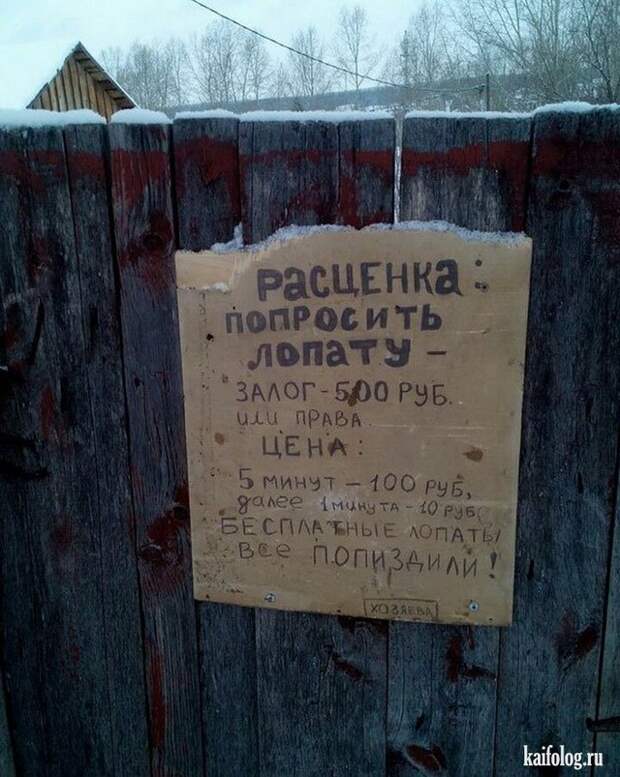 РАСЦЕНКА:
ПОПРОСИТЬ
ЛОПАТУ –
ЗАЛОГ - 500 РУБ.
ИЛИ ПРАВА
ЦЕНА:
5 МИНУТ – 100 РУБ,
далее 1 минута - 10 руб
БЕСПЛАТНЫЕ ЛОПАТЫ
ВСЕ ПОПИЗДИЛИ!
ХОЗЯЕВА
kaifolog.ru